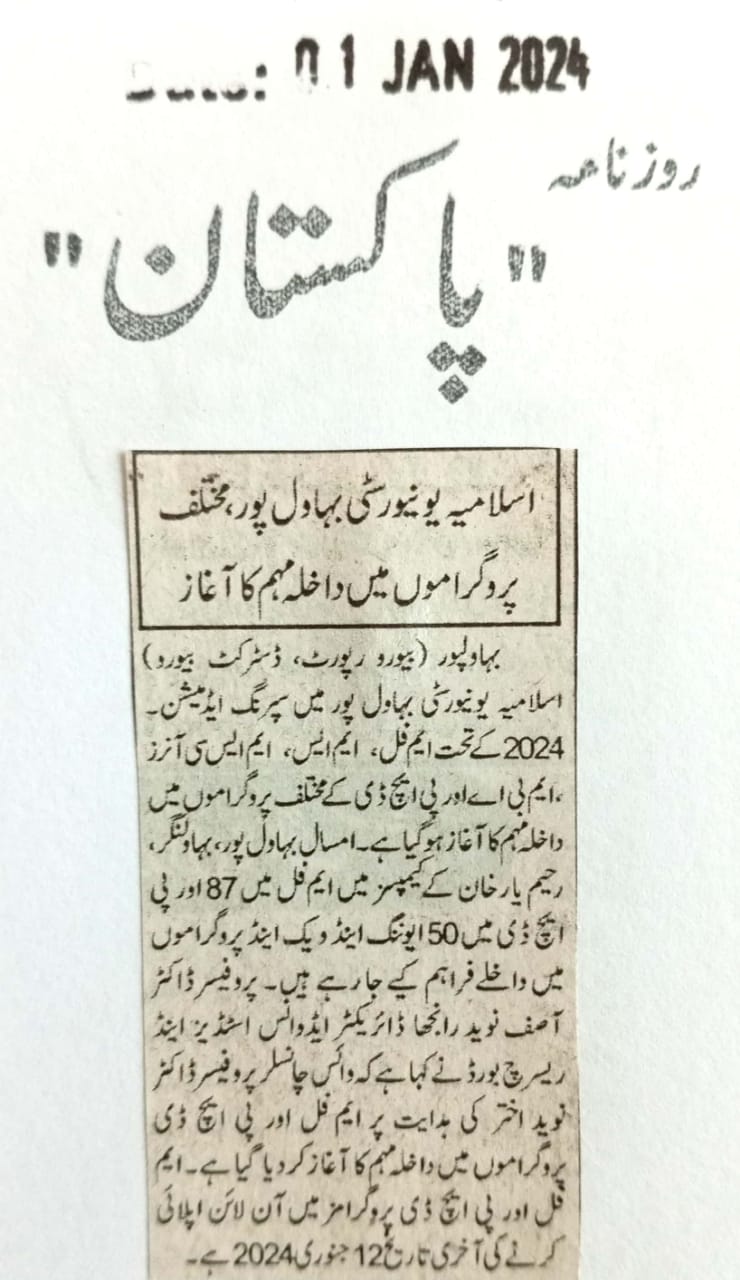 Date: 01 JAN 2024
روزنامہ
"پاکستان"
اسلامیہ یونیورسٹی بہاول پور، مختلف
پروگراموں میں داخلہ مہم کا آغاز
بہاولپور (بیورو رپورٹ، ڈسٹرکٹ بیورو)
اسلامیہ یونیورسٹی بہاول پور میں سپرنگ ایڈمیشن۔
2024 کے تحت ایم فل، ایم ایس، ایم ایس سی آنرز
،ایم بی اے اور پی ایچ ڈی کے مختلف پروگراموں میں
داخلہ مہم کا آغاز ہو گیا ہے۔ امسال بہاول پور، بہاولنگر،
رحیم یار خان کے کیمپسز میں ایم فل میں 87 اور پی
ایچ ڈی میں 50 ایوننگ اینڈ ویک اینڈ پروگراموں
میں داخلے فراہم کیے جا رہے ہیں۔ پروفیسر ڈاکٹر
آصف نوید رانجھا ڈائریکٹر ایڈوانس اسٹڈیز اینڈ
ریسرچ بورڈ نے کہا ہے کہ وائس چانسلر پروفیسر ڈاکٹر
نوید اختر کی ہدایت پر ایم فل اور پی ایچ ڈی
پروگراموں میں داخلہ مہم کا آغاز کر دیا گیا ہے۔ ایم
فل اور پی ایچ ڈی پروگرامز میں آن لائن اپلائی
کرنے کی آخری تاریخ 12 جنوری 2024 ہے۔